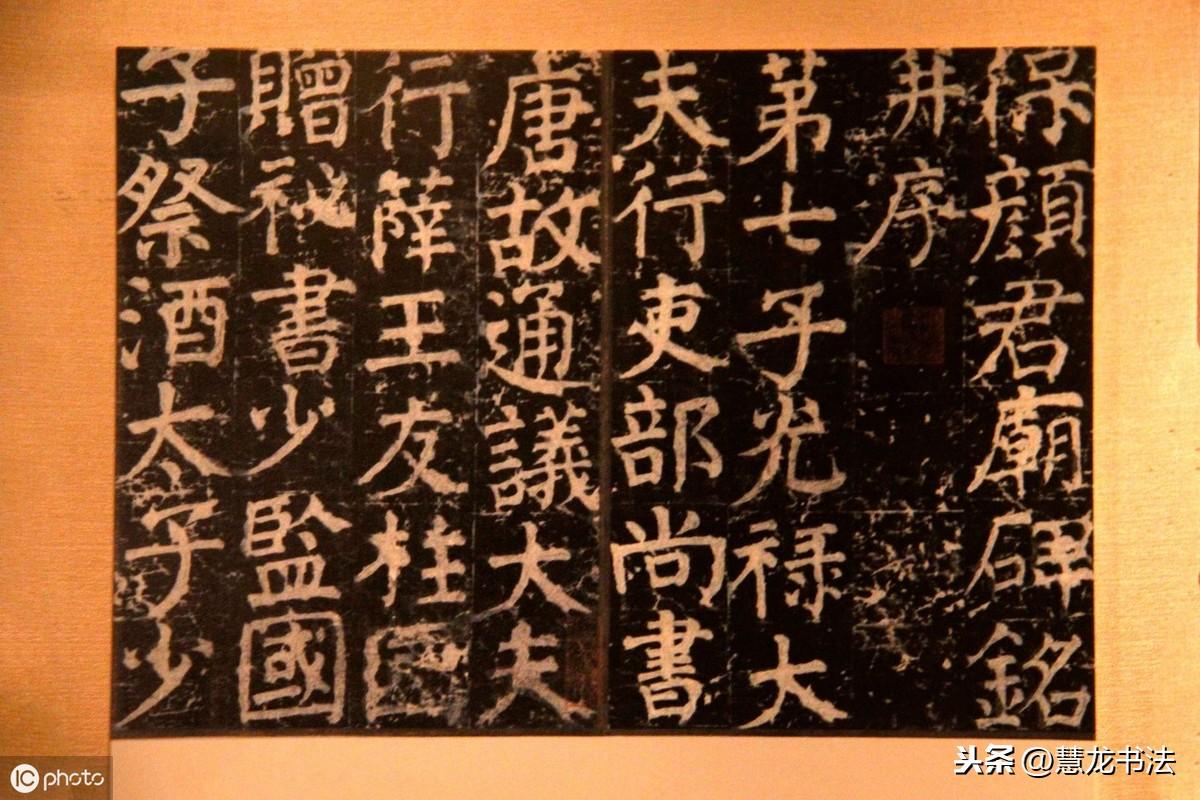 保顏君廟碑銘
并序
第七子光禄大
夫行吏部尚書
唐故通議大夫
行薛王友柱國
贈祕書少監國
子祭酒太子少
IC photo
头条@慧龙书法